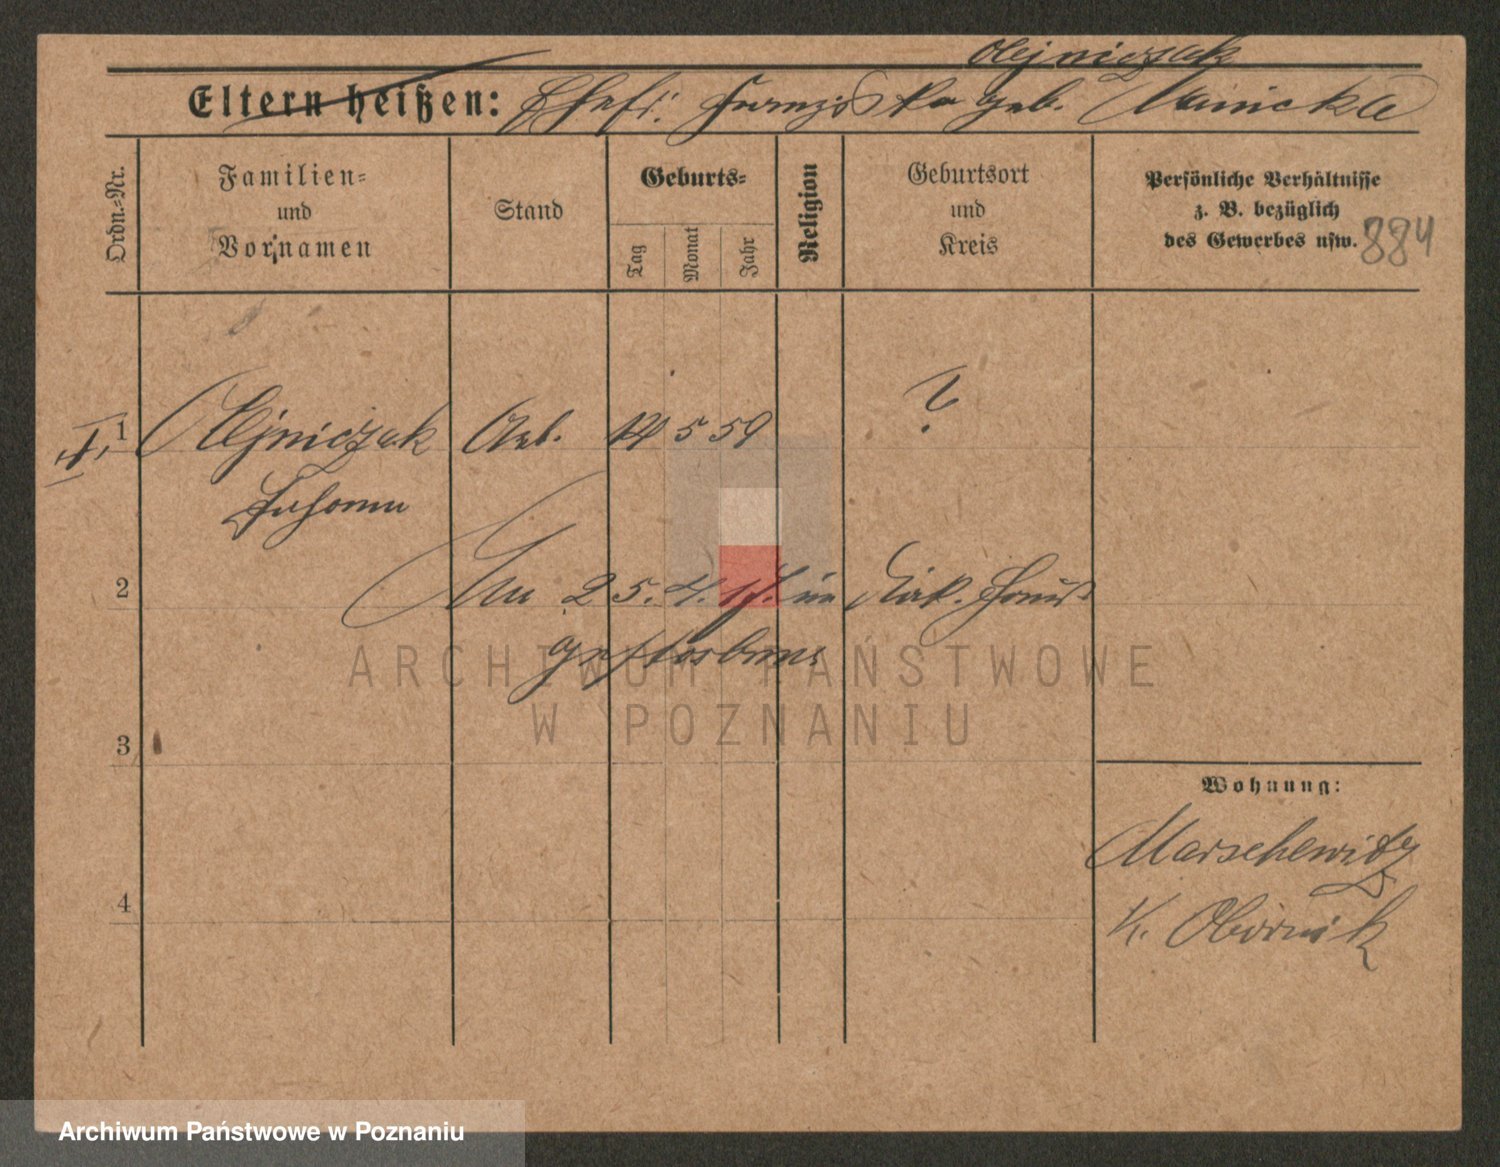 Olejniczak
Eltern heißen: Ehefr: Franziska geb.
Ordn.-Nr.
Familien-
und
Vornamen
Stand
Geburts-
Tag
Monat
Jahr
Religion
Geburtsort
und
Kreis
Persönliche Verhältnisse
z. B. bezüglich
des Gewerbes usw. 884
1 Olejniczak Arb. 14 5 59 ?
2 Am 25. 4. 17. im
gestorben.
3
4
Wohnung:
Marschewitz
K. Obornik
ARCHIWUM PAŃSTWOWE
W POZNANIU
Archiwum Państwowe w Poznaniu